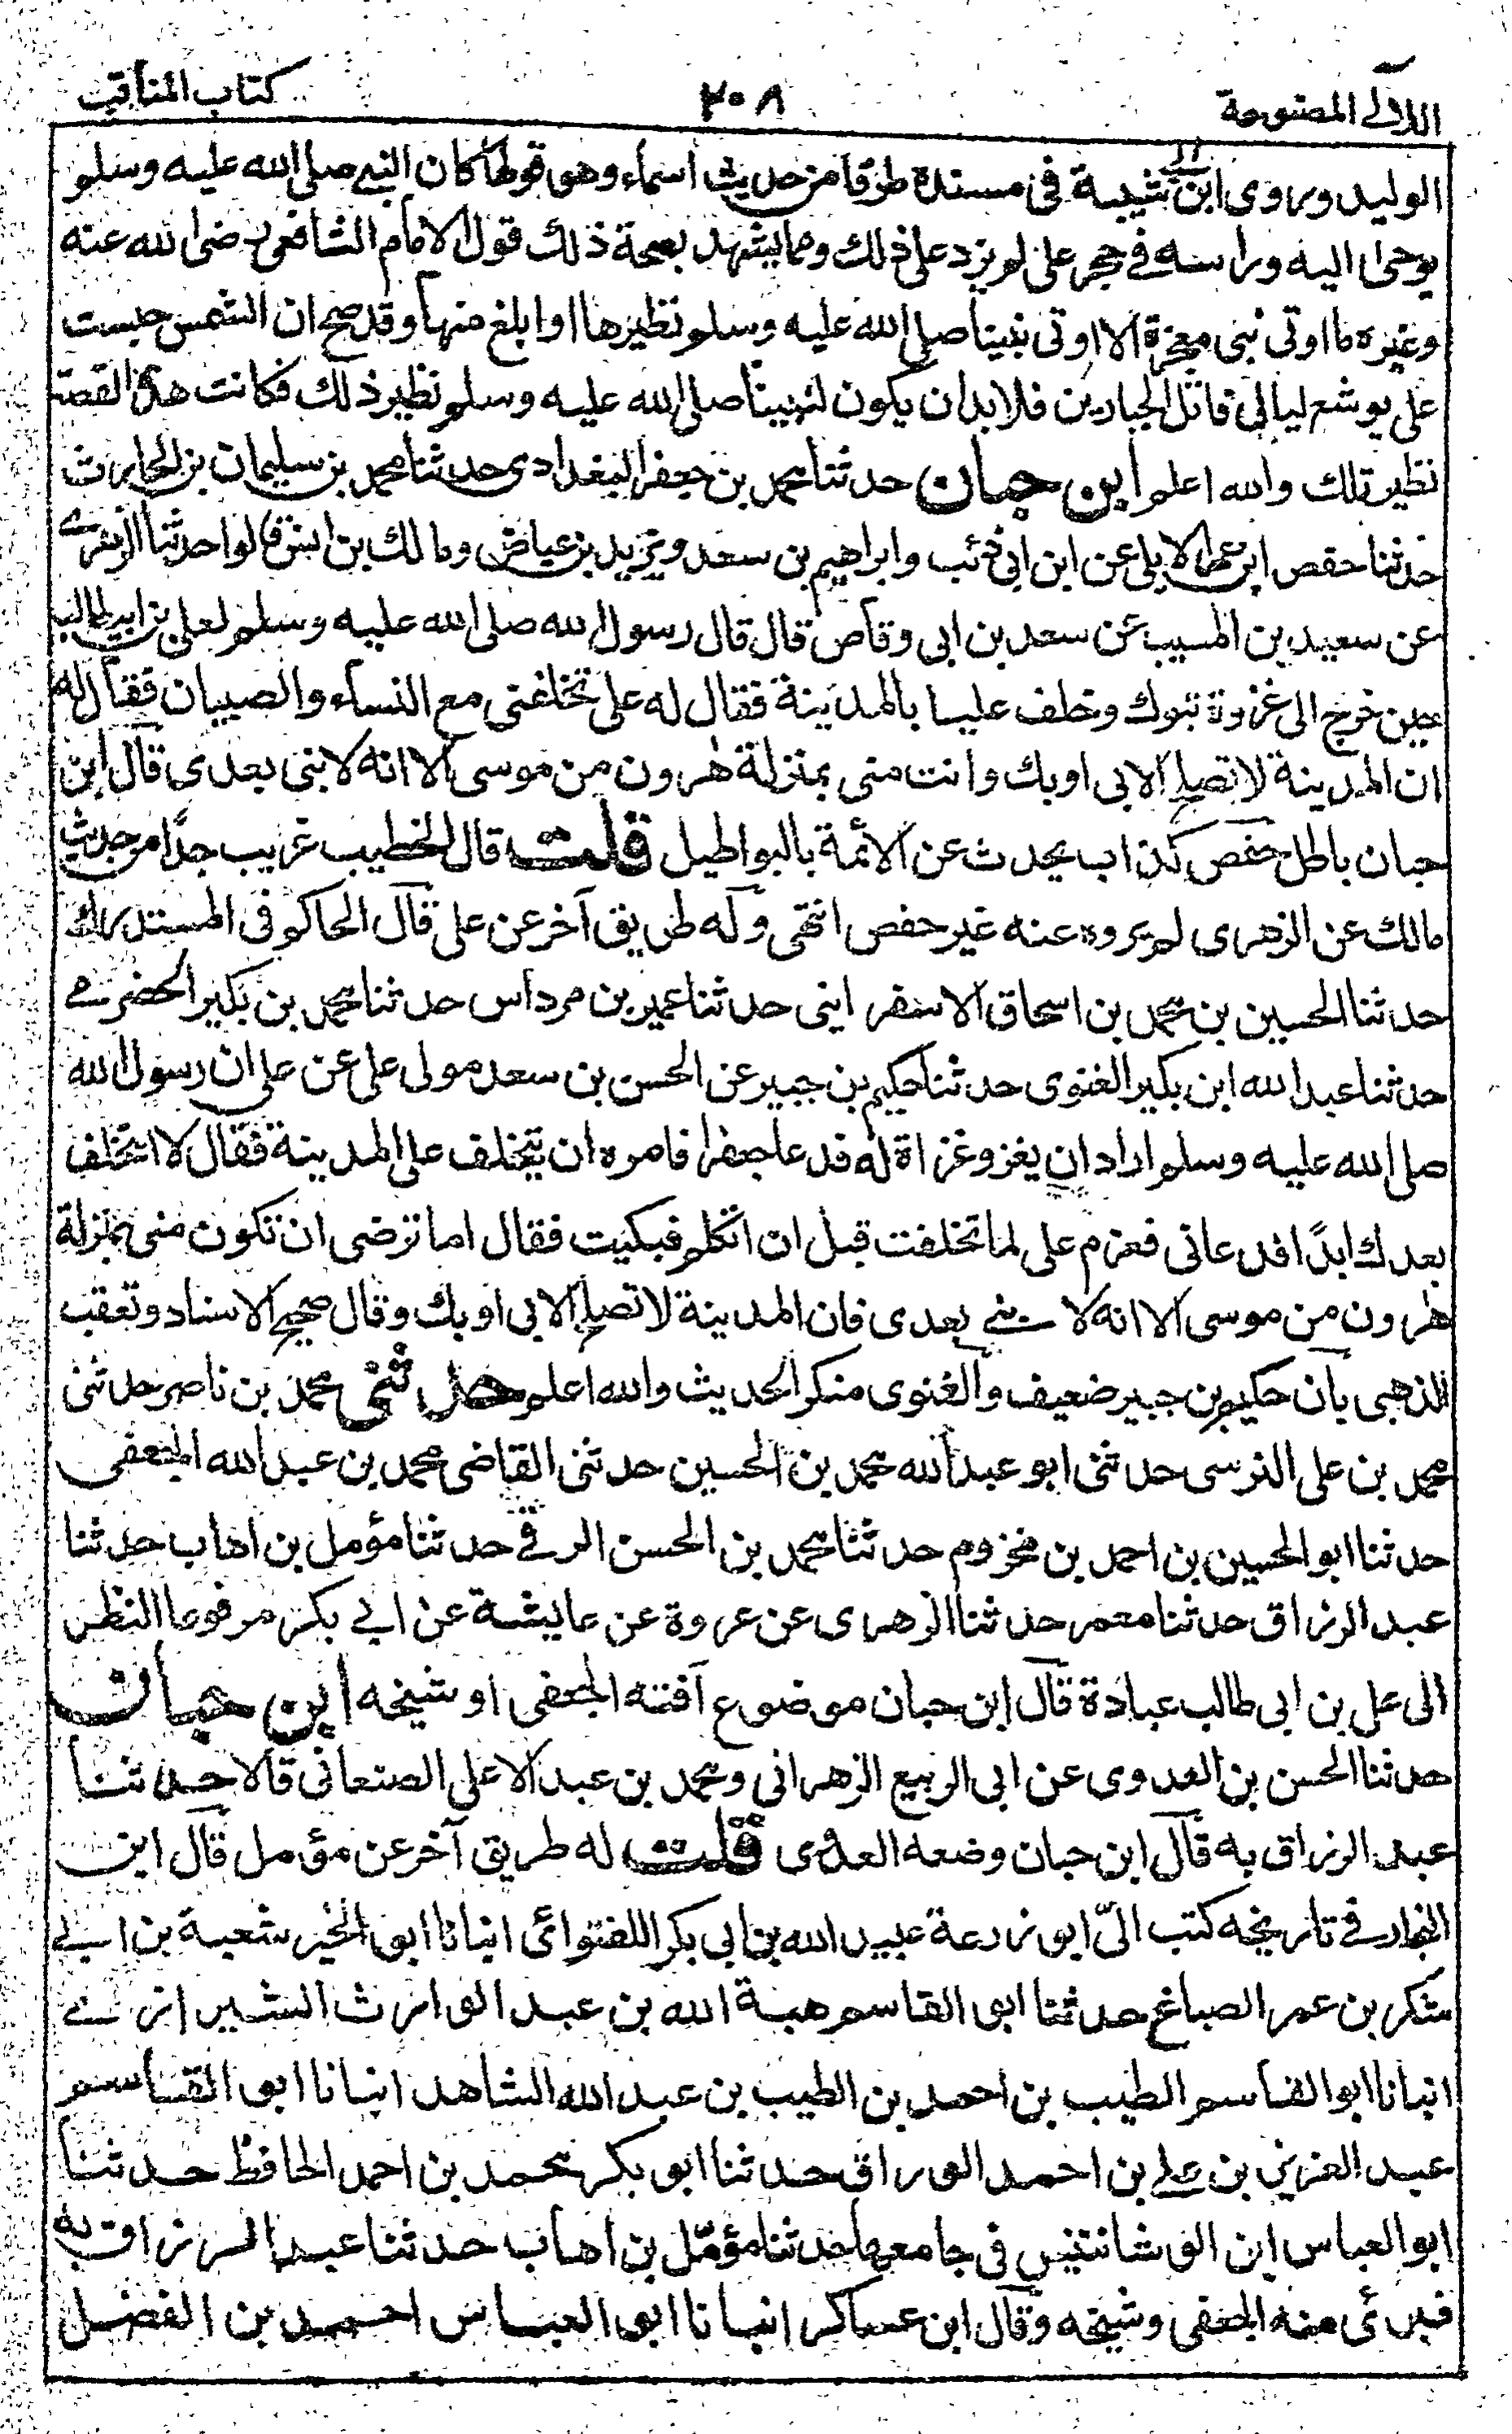 اللآلى المصنوعة ٢٠٨ كتاب المناقب
الوليد وروى ابن شيبة فى مسنده طرقا من حديث اسماء وهو قولها كان النبى صلى الله عليه وسلم
يوحى اليه وراسه فى حجر على لم يزد على ذلك ومما يشهد بصحة ذلك قول الامام الشافعى رضى الله عنه
وغيره ما اوتى نبى معجزة الا اوتى نبينا صلى الله عليه وسلم نظيرها او ابلغ منها وقد صح ان الشمس حبست
على يوشع ليالى قاتل الجبارين فلا بد ان يكون لنبينا صلى الله عليه وسلم نظير ذلك فكانت هذه القصة
نظير تلك والله اعلم ابن حبان حدثنا محمد بن جعفر البغدادى حدثنا محمد بن سليمان بن الحارث
حدثنا حفص ابن عمر الابلى عن ابن ابى ذئب وابراهيم بن سعد ويزيد بن عياض ومالك بن انس قالوا حدثنا الزهرى
عن سعيد بن المسيب عن سعد بن ابى وقاص قال قال رسول الله صلى الله عليه وسلم لعلى بن ابى طالب
حين خرج الى غزوة تبوك وخلف عليا بالمدينة فقال له على تخلفنى مع النساء والصبيان فقال له
ان المدينة لا تصلح الا بى او بك وانت منى بمنزلة هرون من موسى الا انه لا نبى بعدى قال ابن
حبان باطل حفص كذاب يحدث عن الائمة بالبواطيل قلت قال الخطيب غريب جدًا من حديث
مالك عن الزهرى لم يروه عنه غير حفص انتهى وله طريق آخر عن على قال الحاكم فى المستدرك
حدثنا الحسين بن محمد بن اسحاق الاسفراينى حدثنا عمير بن مرداس حدثنا محمد بن بكير الحضرمى
حدثنا عبد الله ابن بكير الغنوى حدثنا حكيم بن جبير عن الحسن بن سعد مولى على عن على ان رسول الله
صلى الله عليه وسلم اراد ان يغزو غزاة له فدعا جعفرا فامره ان يتخلف على المدينة فقال لا اتخلف
بعدك ابدًا فدعانى فعزم على لما تخلفت قبل ان اتكلم فبكيت فقال اما ترضى ان تكون منى بمنزلة
هرون من موسى الا انه لا نبى بعدى فان المدينة لا تصلح الا بى او بك وقال صحيح الاسناد وتعقب
الذهبى بان حكيم بن جبير ضعيف والغنوى منكر الحديث والله اعلم حدثنى محمد بن ناصر حدثنى
محمد بن على النرسى حدثنى ابو عبد الله محمد بن الحسين حدثنى القاضى محمد بن عبد الله الجعفى
حدثنا ابو الحسين بن احمد بن مخزوم حدثنا محمد بن الحسن الرقى حدثنا مؤمل بن اهاب حدثنا
عبد الرزاق حدثنا معمر حدثنا الزهرى عن عروة عن عايشة عن ابى بكر مرفوعا النظر
الى على بن ابى طالب عبادة قال ابن حبان موضوع آفته الجعفى او شيخه ابن حبان
حدثنا الحسن بن العدوى عن ابى الربيع الزهرانى ومحمد بن عبد الاعلى الصنعانى قالا حدثنا
عبد الرزاق به قال ابن حبان وضعه العدوى قلت له طريق آخر عن مؤمل قال ابن
النجار فى تاريخه كتب الىّ ابو زرعة عبيد الله بن ابى بكر اللفتوائى انبانا ابو الخير شعبة بن ابى
شكر بن عمر الصباغ حدثنا ابو القاسم هبة الله بن عبد الوارث الشيرازى
انبانا ابو القاسم الطيب بن احمد بن الطيب بن عبد الله الشاهد انبانا ابو القاسم
عبد العزيز بن على بن احمد الوراق حدثنا ابو بكر محمد بن احمد الحافظ حدثنا
ابو العباس ابن فى جامعها حدثنا مؤمّل بن اهاب حدثنا عبد الرزاق به
فبرئ منه الجعفى وشيخه وقال ابن عساكر انبانا ابو العباس احمد بن الفضل